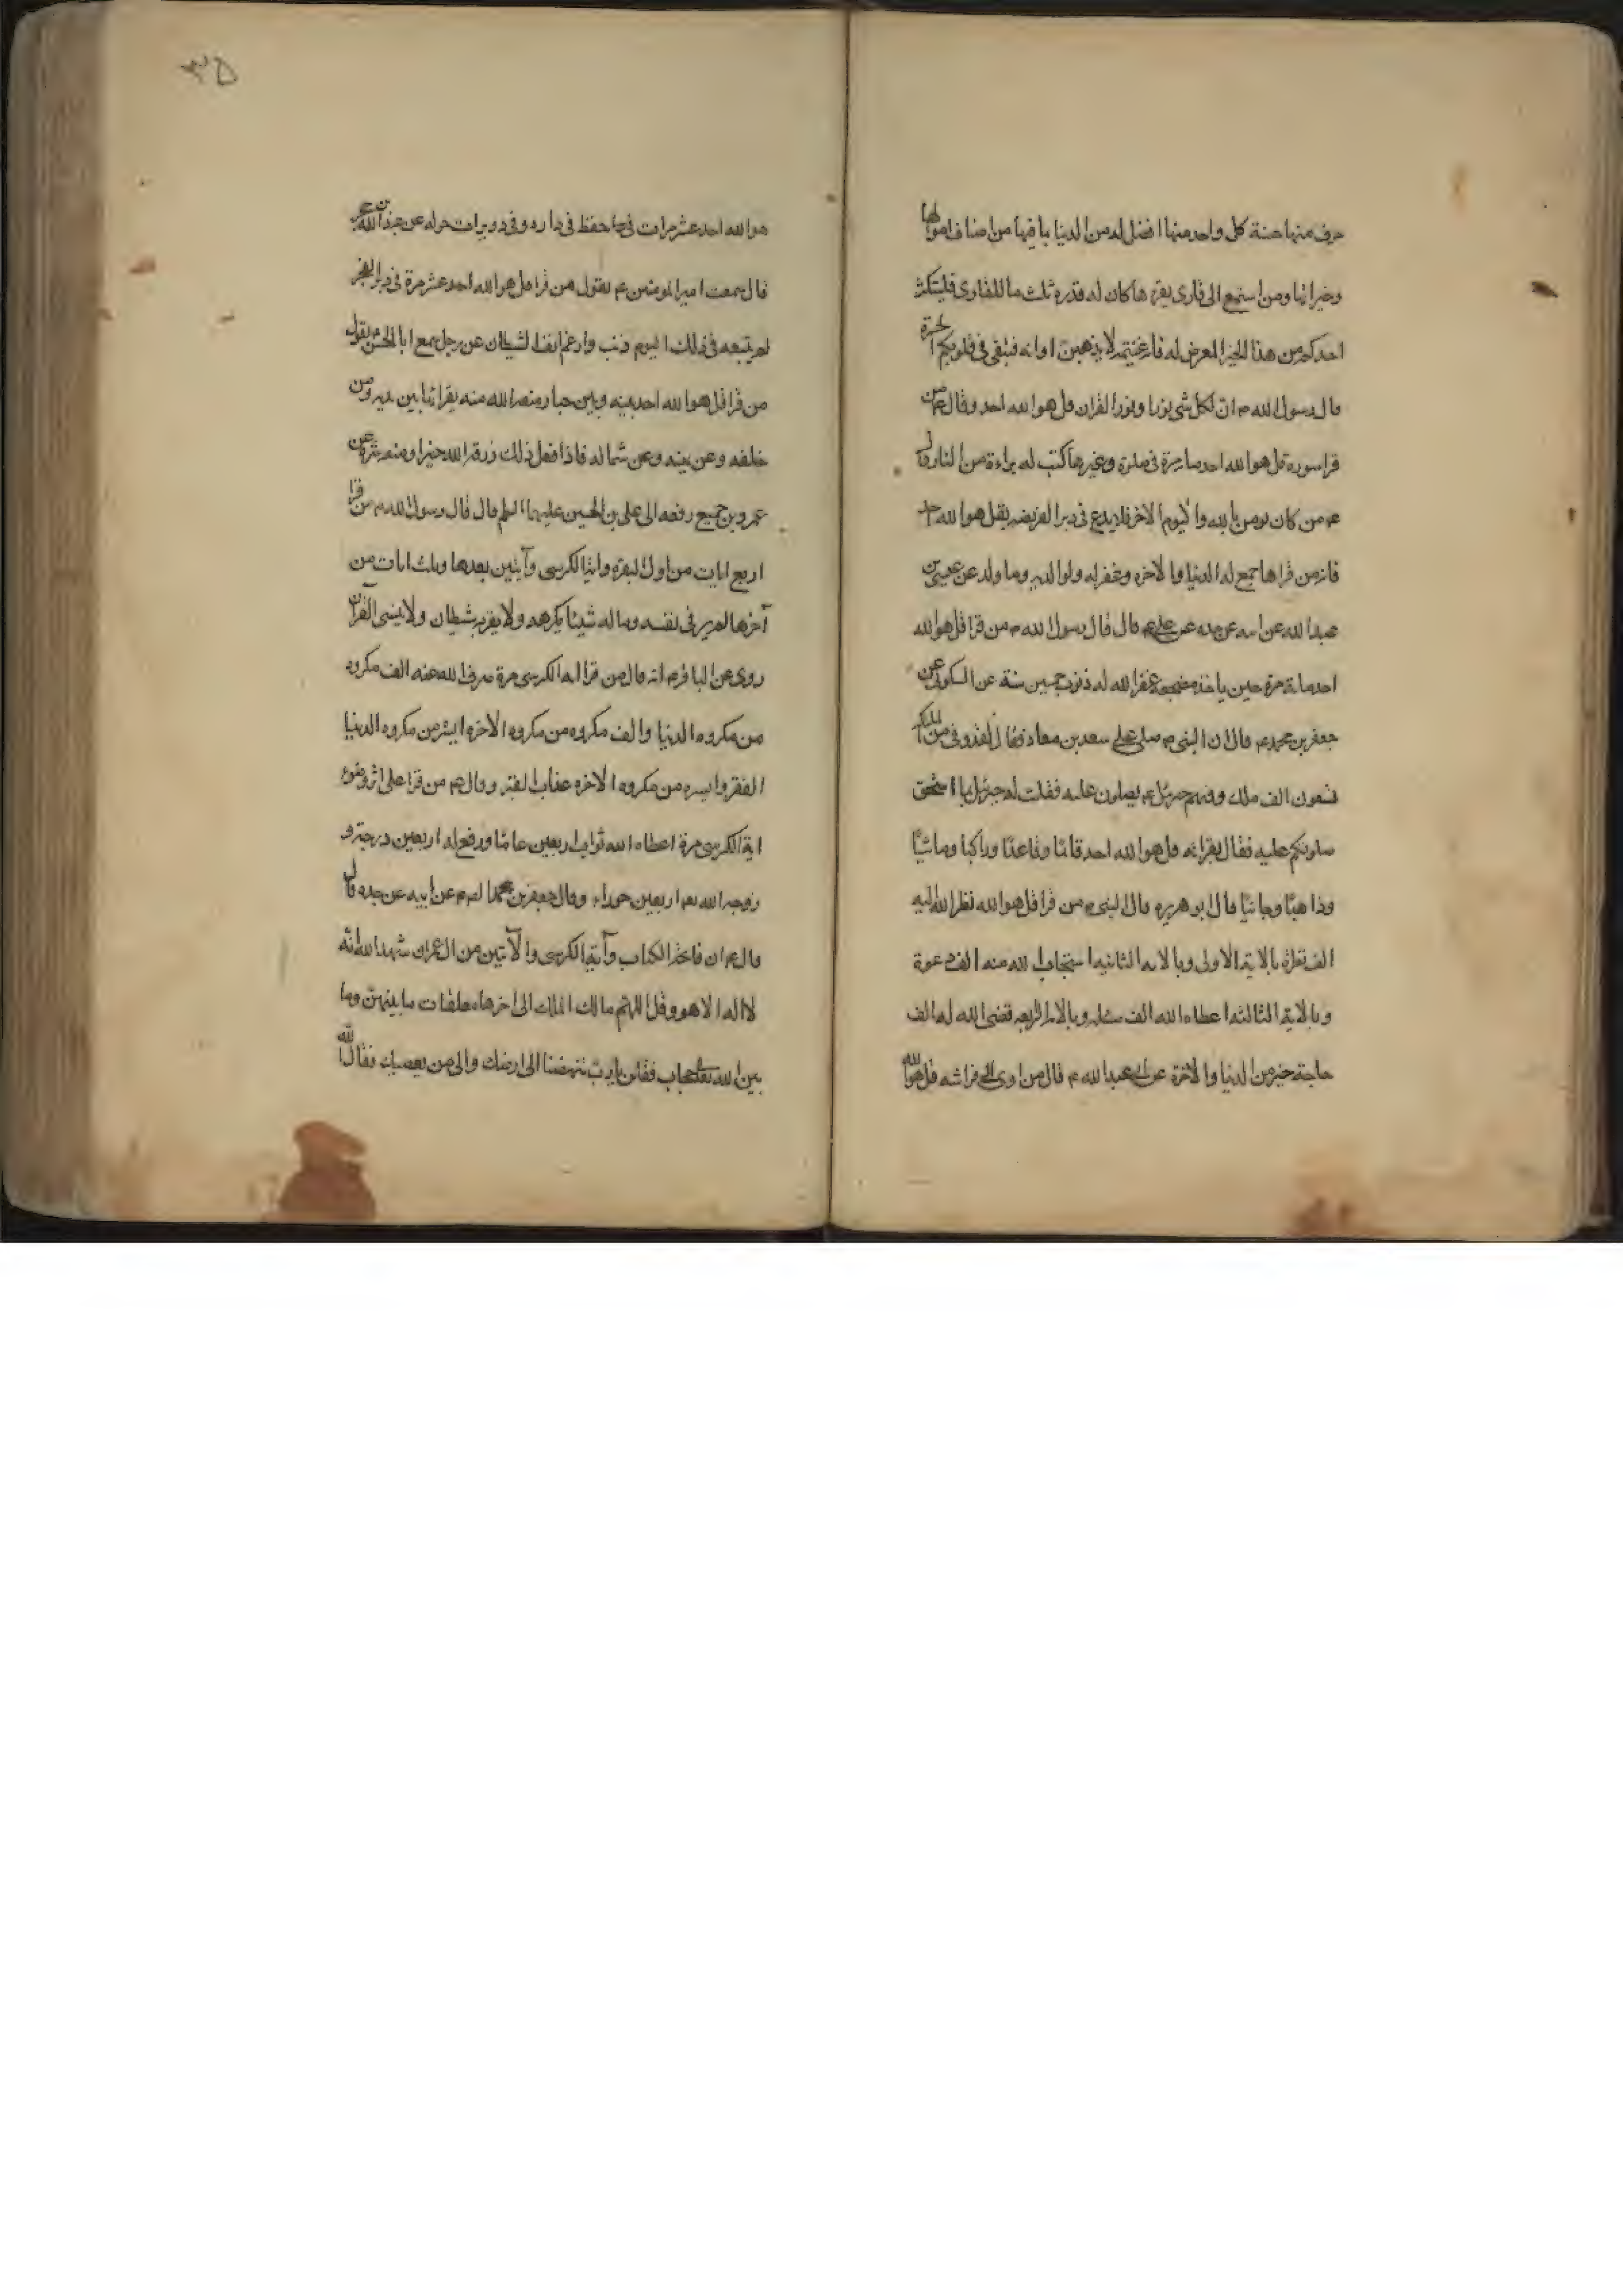 حرف منها حسنة كل واحد منها افضل له من الدنيا بما فيها من اصناف اموالها
وخيراتها ومن استمع الى قارى يقرءها كان له قدر ثلث ما للقارى فليستكثر
احدكم من هذا الخير المعرض له فانه غنيمة لا يذهبن اوانه فتبقى فى قلوبكم الحسرة
قال رسول الله ص ان لكل شى نورا ونور القران قل هو الله احد وقال ص من
قرا سورة قل هو الله احد ماية مرة فى صلوة وغيرها كتب له براءة من النار وقال
ص من كان يومن بالله واليوم الاخر فلا يدع فى دبر الفريضه بقل هو الله احد
فانه من قراها جمع له الدنيا والاخره وغفر له ولوالديه وما ولد عن عيسى بن
عبد الله عن ابيه عن جده عن على ع قال قال رسول الله ص من قرا قل هو الله
احد مائة مرة حين ياخذ مضجعه غفر الله له ذنوب خمسين سنة عن السكونى عن
جعفر بن محمد ع قال ان النبى ص صلى على سعد بن معاذ فقال لقد وفى من الملئكة
تسعون الف ملك وفيهم جبرئيل ع يصلون عليه فقلت له جبرئيل بما استحق
صلوتكم عليه فقال بقرائته قل هو الله احد قائما وقاعدا وراكبا وماشيا
وذاهبا وجائيا قال ابو هريره قال النبى ص من قرا قل هو الله نظر الله اليه
الف نظرة بالاية الاولى وبالاية الثانيه استجاب الله منه الف دعوة
وبالاية الثالثه اعطاه الله الف مسئله وبالاية الرابعه قضى الله له الف
حاجة خير من الدنيا والاخرة عن ابى عبد الله ع قال من اوى الى فراشه قل هو الله
٣٥
هو الله احد عشر مرات فى حفظ فى داره وفى دويرات حوله عن عبد الله بن حجر
قال سمعت امير المومنين ع يقول من قرا قل هو الله احد عشر مرة فى دبر الفجر
لم يتبعه فى ذلك اليوم ذنب وارغم انف الشيطان عن رجل سمع ابا الحسن يقول
من قرا قل هو الله احد بينه وبين جبار منعه الله منه يقرائها بين يديه ومن
خلفه وعن يمينه وعن شماله فاذا فعل ذلك رزقه الله خيره ومنعه شره عن
عمرو بن جميع رفعه الى على بن الحسين عليهما السلم قال قال رسول الله ص من قرا
اربع ايات من اول البقره واية الكرسى وآيتين بعدها وثلث ايات من
آخرها لم ير فى نفسه وماله شيئا يكرهه ولا يقربه شيطان ولا ينسى القرآن
روى عن الباقر ع انه قال من قرا اية الكرسى مرة صرف الله عنه الف مكروه
من مكروه الدنيا والف مكروه من مكروه الاخره ايسر من مكروه الدنيا
الفقر وايسره من مكروه الاخره عذاب القبر وقال ع من قرا على اثر وضوء
اية الكرسى مرة اعطاه الله ثواب اربعين عاما ورفع له اربعين درجة و
زوجه الله تع اربعين حوراء وقال جعفر بن محمد الص ع عن ابيه عن جده قال
قال ع ان فاتحة الكتاب وآية الكرسى والآيتين من ال عمران شهد الله انه
لا اله الا هو وقل اللهم مالك الملك الى آخرها معلقات ما بينهن وما
بين الله تعالى حجاب فقلن يا رب تهبطنا الى ارضك والى من يعصيك فقال الله